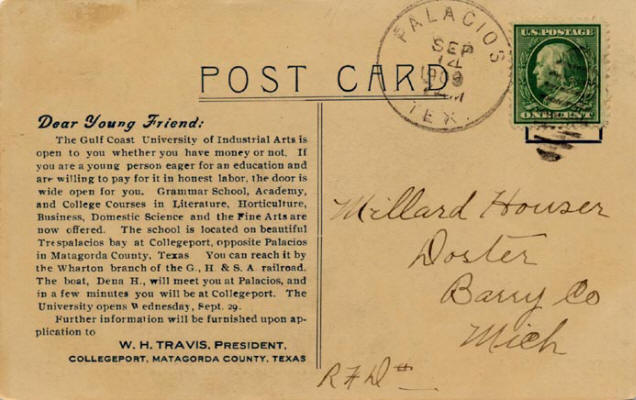 POST CARD
PALACIOS
SEP
14
1909
M
TEX.
U.S. POSTAGE
ONE CENT
Dear Young Friend:
The Gulf Coast University of Industrial Arts is
open to you whether you have money or not. If
you are a young person eager for an education and
are willing to pay for it in honest labor, the door is
wide open for you. Grammar School, Academy,
and College Courses in Literature, Horticulture,
Business, Domestic Science and the Fine Arts are
now offered. The school is located on beautiful
Trespalacios bay at Collegeport, opposite Palacios
in Matagorda County, Texas You can reach it by
the Wharton branch of the G., H. & S. A. railroad.
The boat, Dena H., will meet you at Palacios, and
in a few minutes you will be at Collegeport. The
University opens Wednesday, Sept. 29.
Further information will be furnished upon ap-
plication to
W. H. TRAVIS, PRESIDENT,
COLLEGEPORT, MATAGORDA COUNTY, TEXAS
Millard Houser
Doster
Barry Co
Mich
RFD #